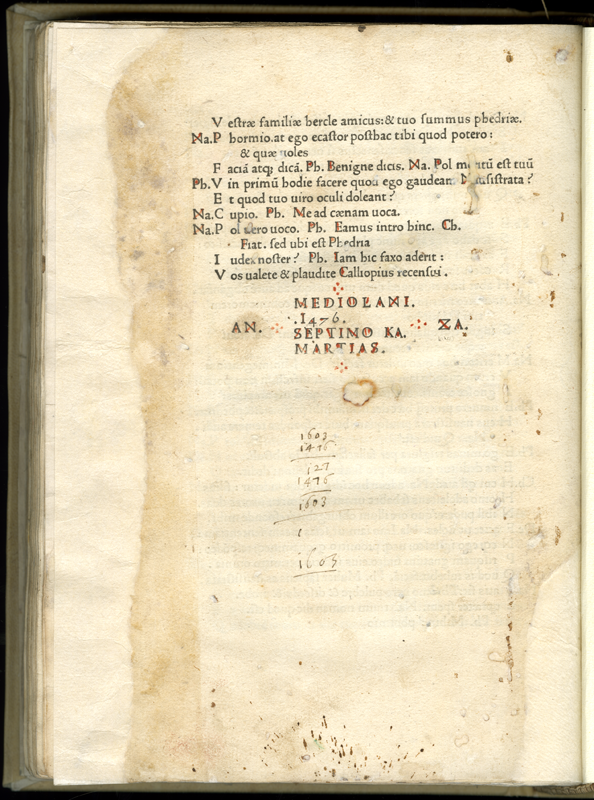 V estræ familiæ hercle amicus: & tuo summus phedriæ.
Na. P hormio. at ego ecastor posthac tibi quod potero:
& quæ uoles
F aciā atq; dicā. Ph. Benigne dicis. Na. Pol meritū est tuū
Ph. V in primū hodie facere quod ego gaudeam Nausistrata?
E t quod tuo uiro oculi doleant?
Na. C upio. Ph. Me ad cœnam uoca.
Na. P ol uero uoco. Ph. Eamus intro hinc. Ch.
Fiat. sed ubi est Phedria
I udex noster? Ph. Iam hic faxo aderit:
V os ualete & plaudite Calliopius recensui.
MEDIOLANI.
.1476.
AN. SEPTIMO KA. ZA.
MARTIAS.
1603
1476
127
1476
1603
1
1603